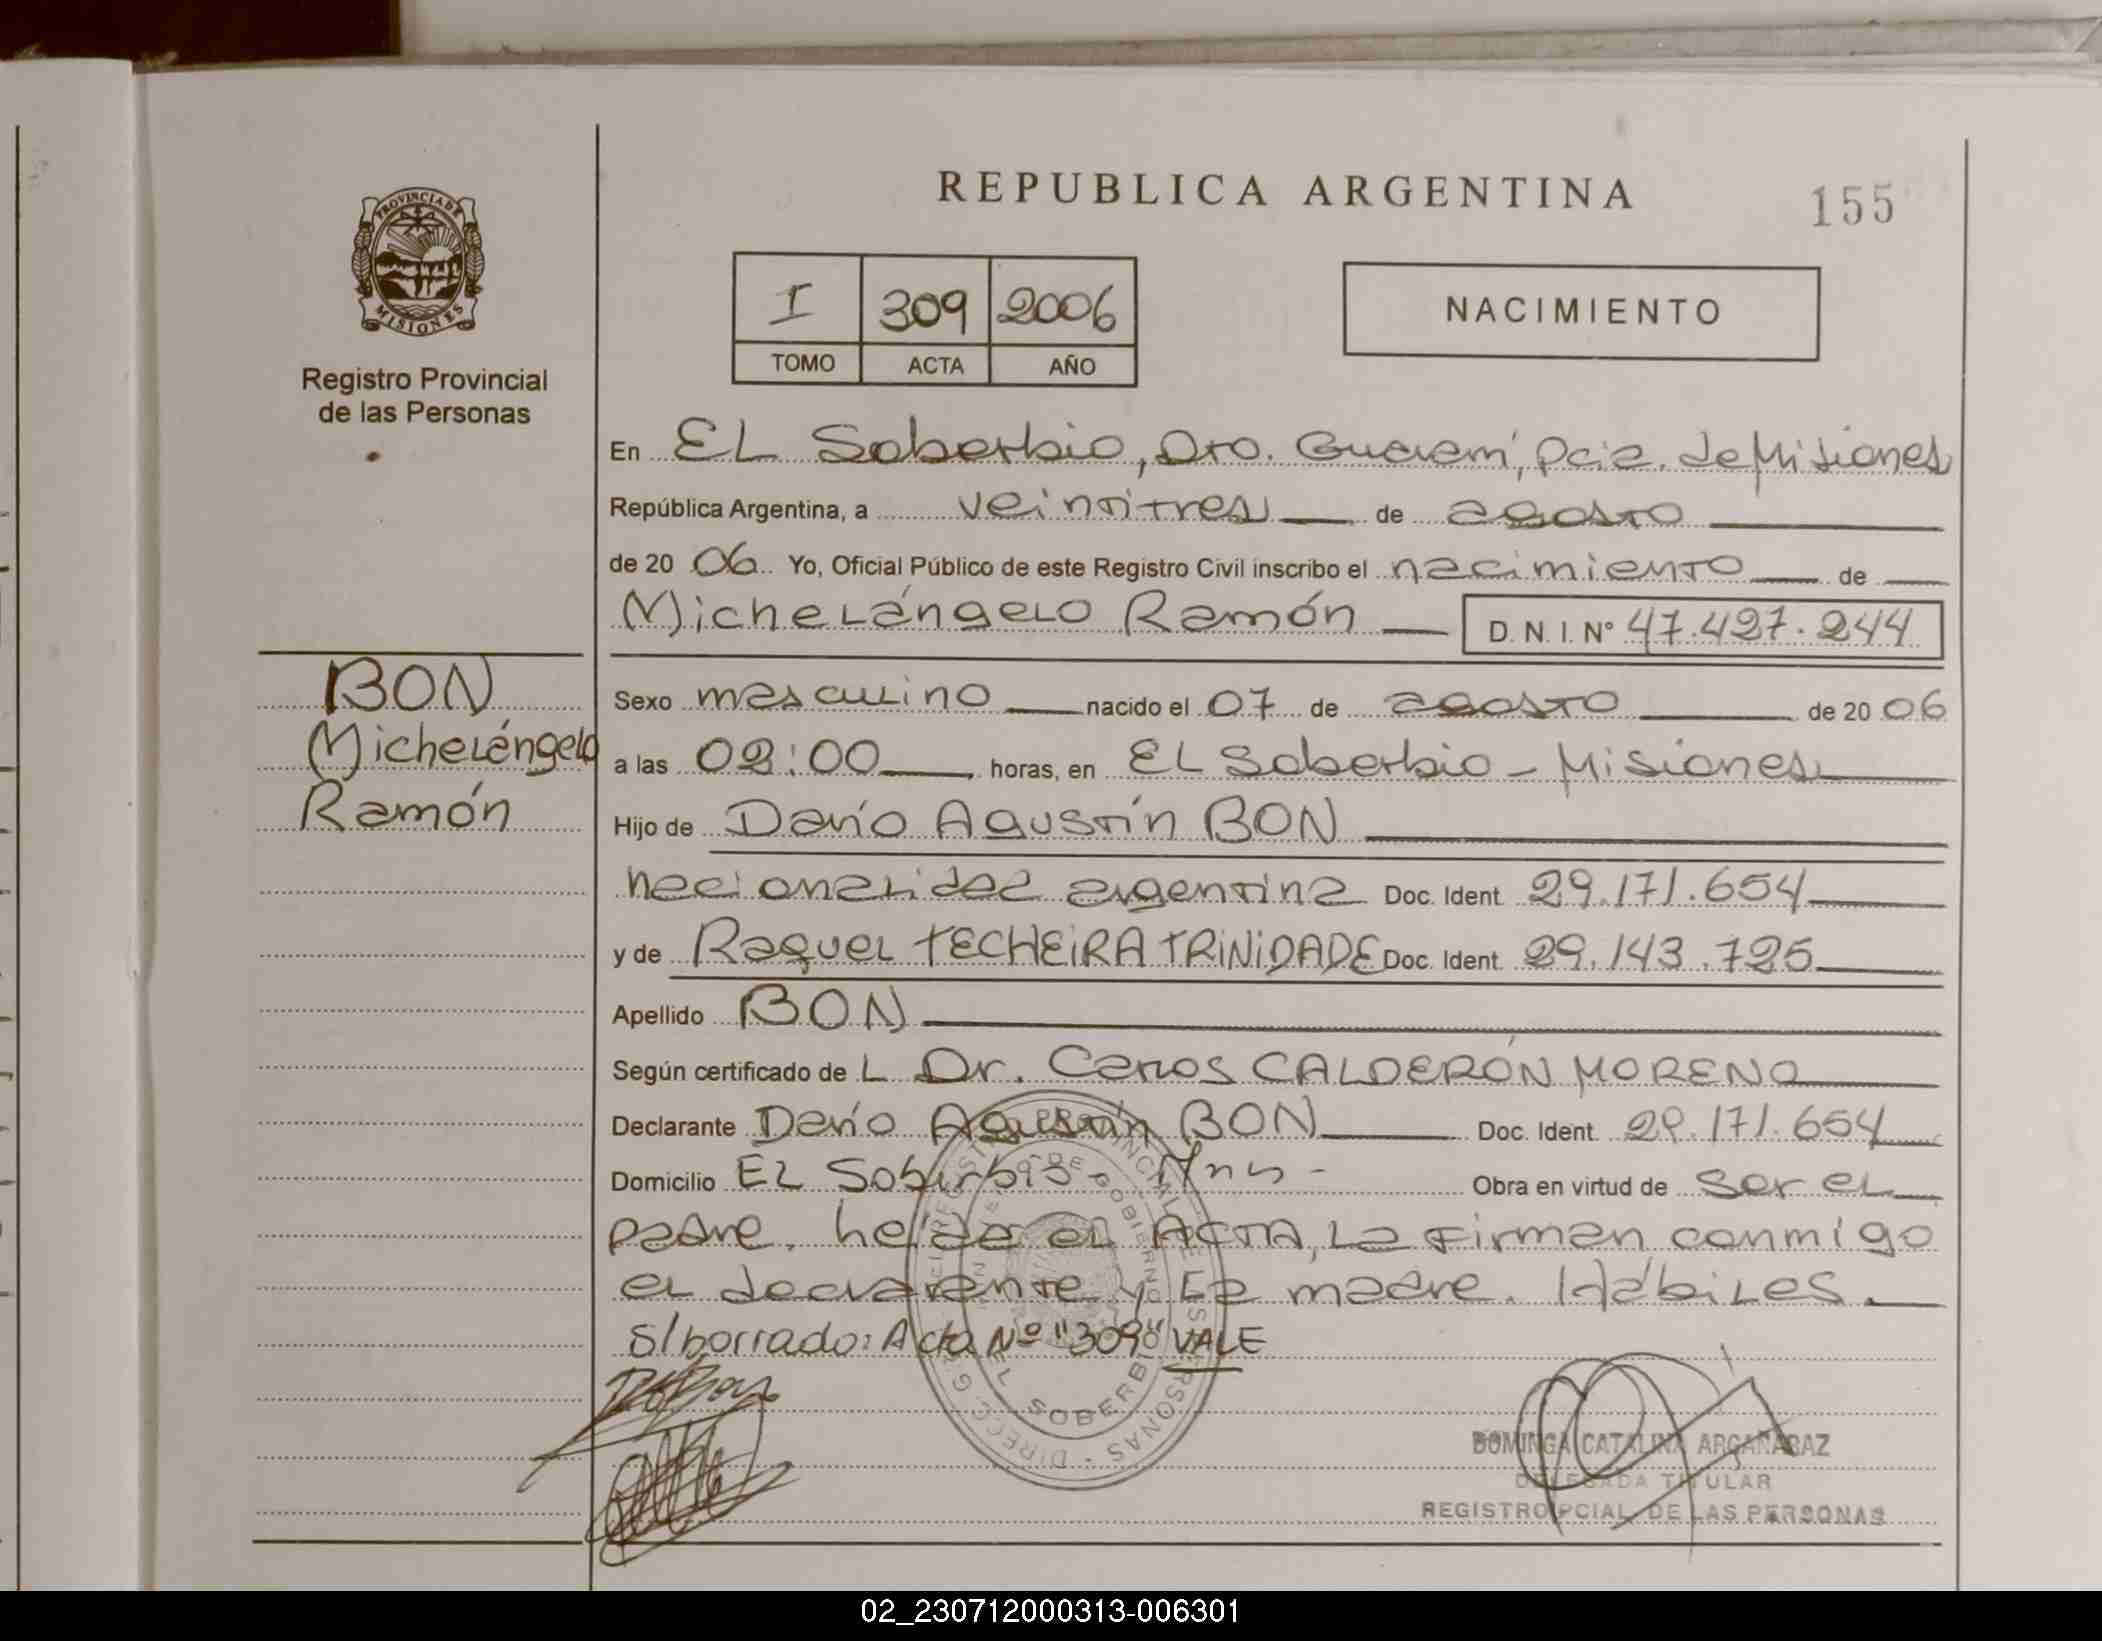 REPUBLICA ARGENTINA
155
PROVINCIA DE
MISIONES
Registro Provincial
de las Personas
I 309 2006
TOMO ACTA AÑO
NACIMIENTO
En EL Soberbio, Dto. Guaraní, Pcia. de Misiones
República Argentina, a veintitres de agosto
de 20 06 Yo, Oficial Público de este Registro Civil inscribo el nacimiento de
Michelángelo Ramón D.N.I. Nº 47.427.244
BON
Michelángelo
Ramón
Sexo masculino nacido el 07 de agosto de 20 06
a las 02:00 horas, en EL Soberbio - Misiones
Hijo de Darío Agustín BON
nacionalidad argentina Doc. Ident. 29.171.654
y de Raquel TECHEIRA TRINIDADE Doc. Ident. 29.143.725
Apellido BON
Según certificado de L Dr. Carlos CALDERÓN MORENO
Declarante Darío Agustín BON Doc. Ident. 29.171.654
Domicilio EL Soberbio - Mns - Obra en virtud de ser el
padre. heída el ACTA, La Firman conmigo
el declarante y La madre. Hábiles.
S/borrado: Acta Nº "309" VALE
EL SOBERBIO
DOMINGA CATALINA ARGAÑARAZ
DELEGADA TITULAR
REGISTRO PCIAL. DE LAS PERSONAS
02_230712000313-006301